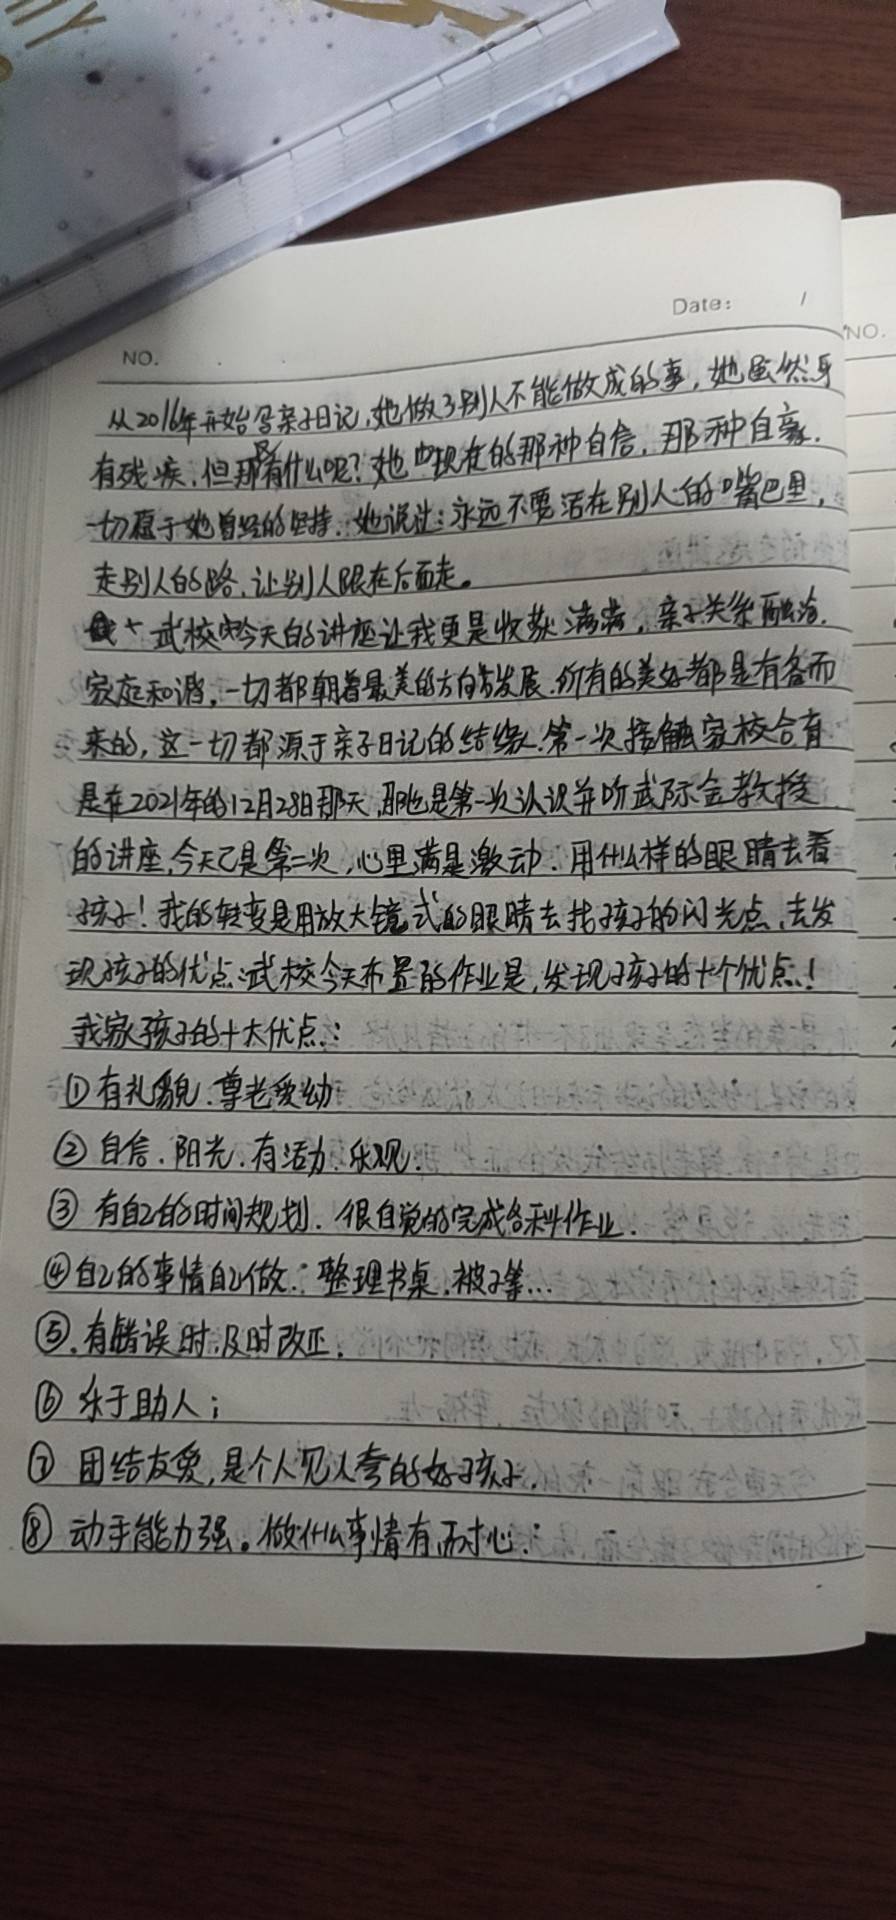 HY
Date: /
NO.
NO.
从2016年开始写亲子日记,她做了别人不能做成的事,她虽然身
有残疾,但那又有什么呢?她出现在的那种自信,那种自豪.
一切源于她曾经的坚持.她说过:永远不要活在别人的嘴巴里,
走别人的路,让别人跟在后面走。
武校今天的讲座让我更是收获满满,亲子关系融洽.
家庭和谐,一切都朝着最美的方向发展.所有的美好都是有备而
来的,这一切都源于亲子日记的结缘.第一次接触家校合育
是在2021年的12月28日那天,那也是第一次认识并听武际金教授
的讲座,今天已是第二次,心里满是激动:用什么样的眼睛去看
孩子!我的转变是用放大镜式的眼睛去找孩子的闪光点,去发
现孩子的优点.武校今天布置的作业是,发现孩子的十个优点!
我家孩子的十大优点:
①有礼貌.尊老爱幼
②自信.阳光.有活力.乐观.
③有自己的时间规划.很自觉的完成各科作业.
④自己的事情自己做:整理书桌.被子等...
⑤.有错误时.及时改正.
⑥乐于助人;
⑦团结友爱,是个人见人夸的好孩子.
⑧动手能力强。做什么事情有耐心: